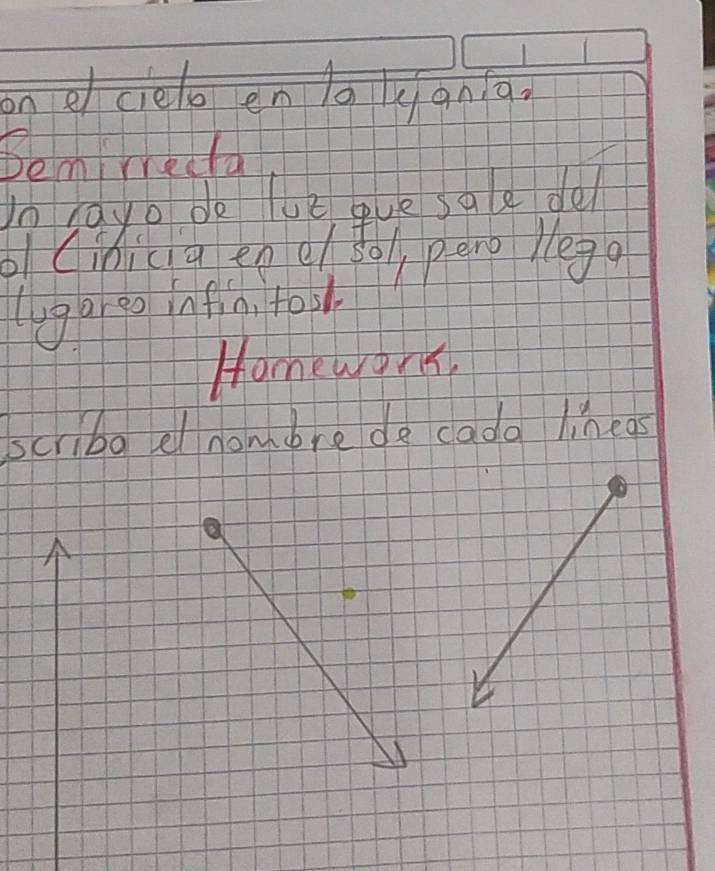 on el cielo en la lejania.
Semirrecta
Un rayo de luz que sale del
ol (inicia en el sol, pero llega
lugares infinitos).
Homework.
scriba el nombre de cada lineas